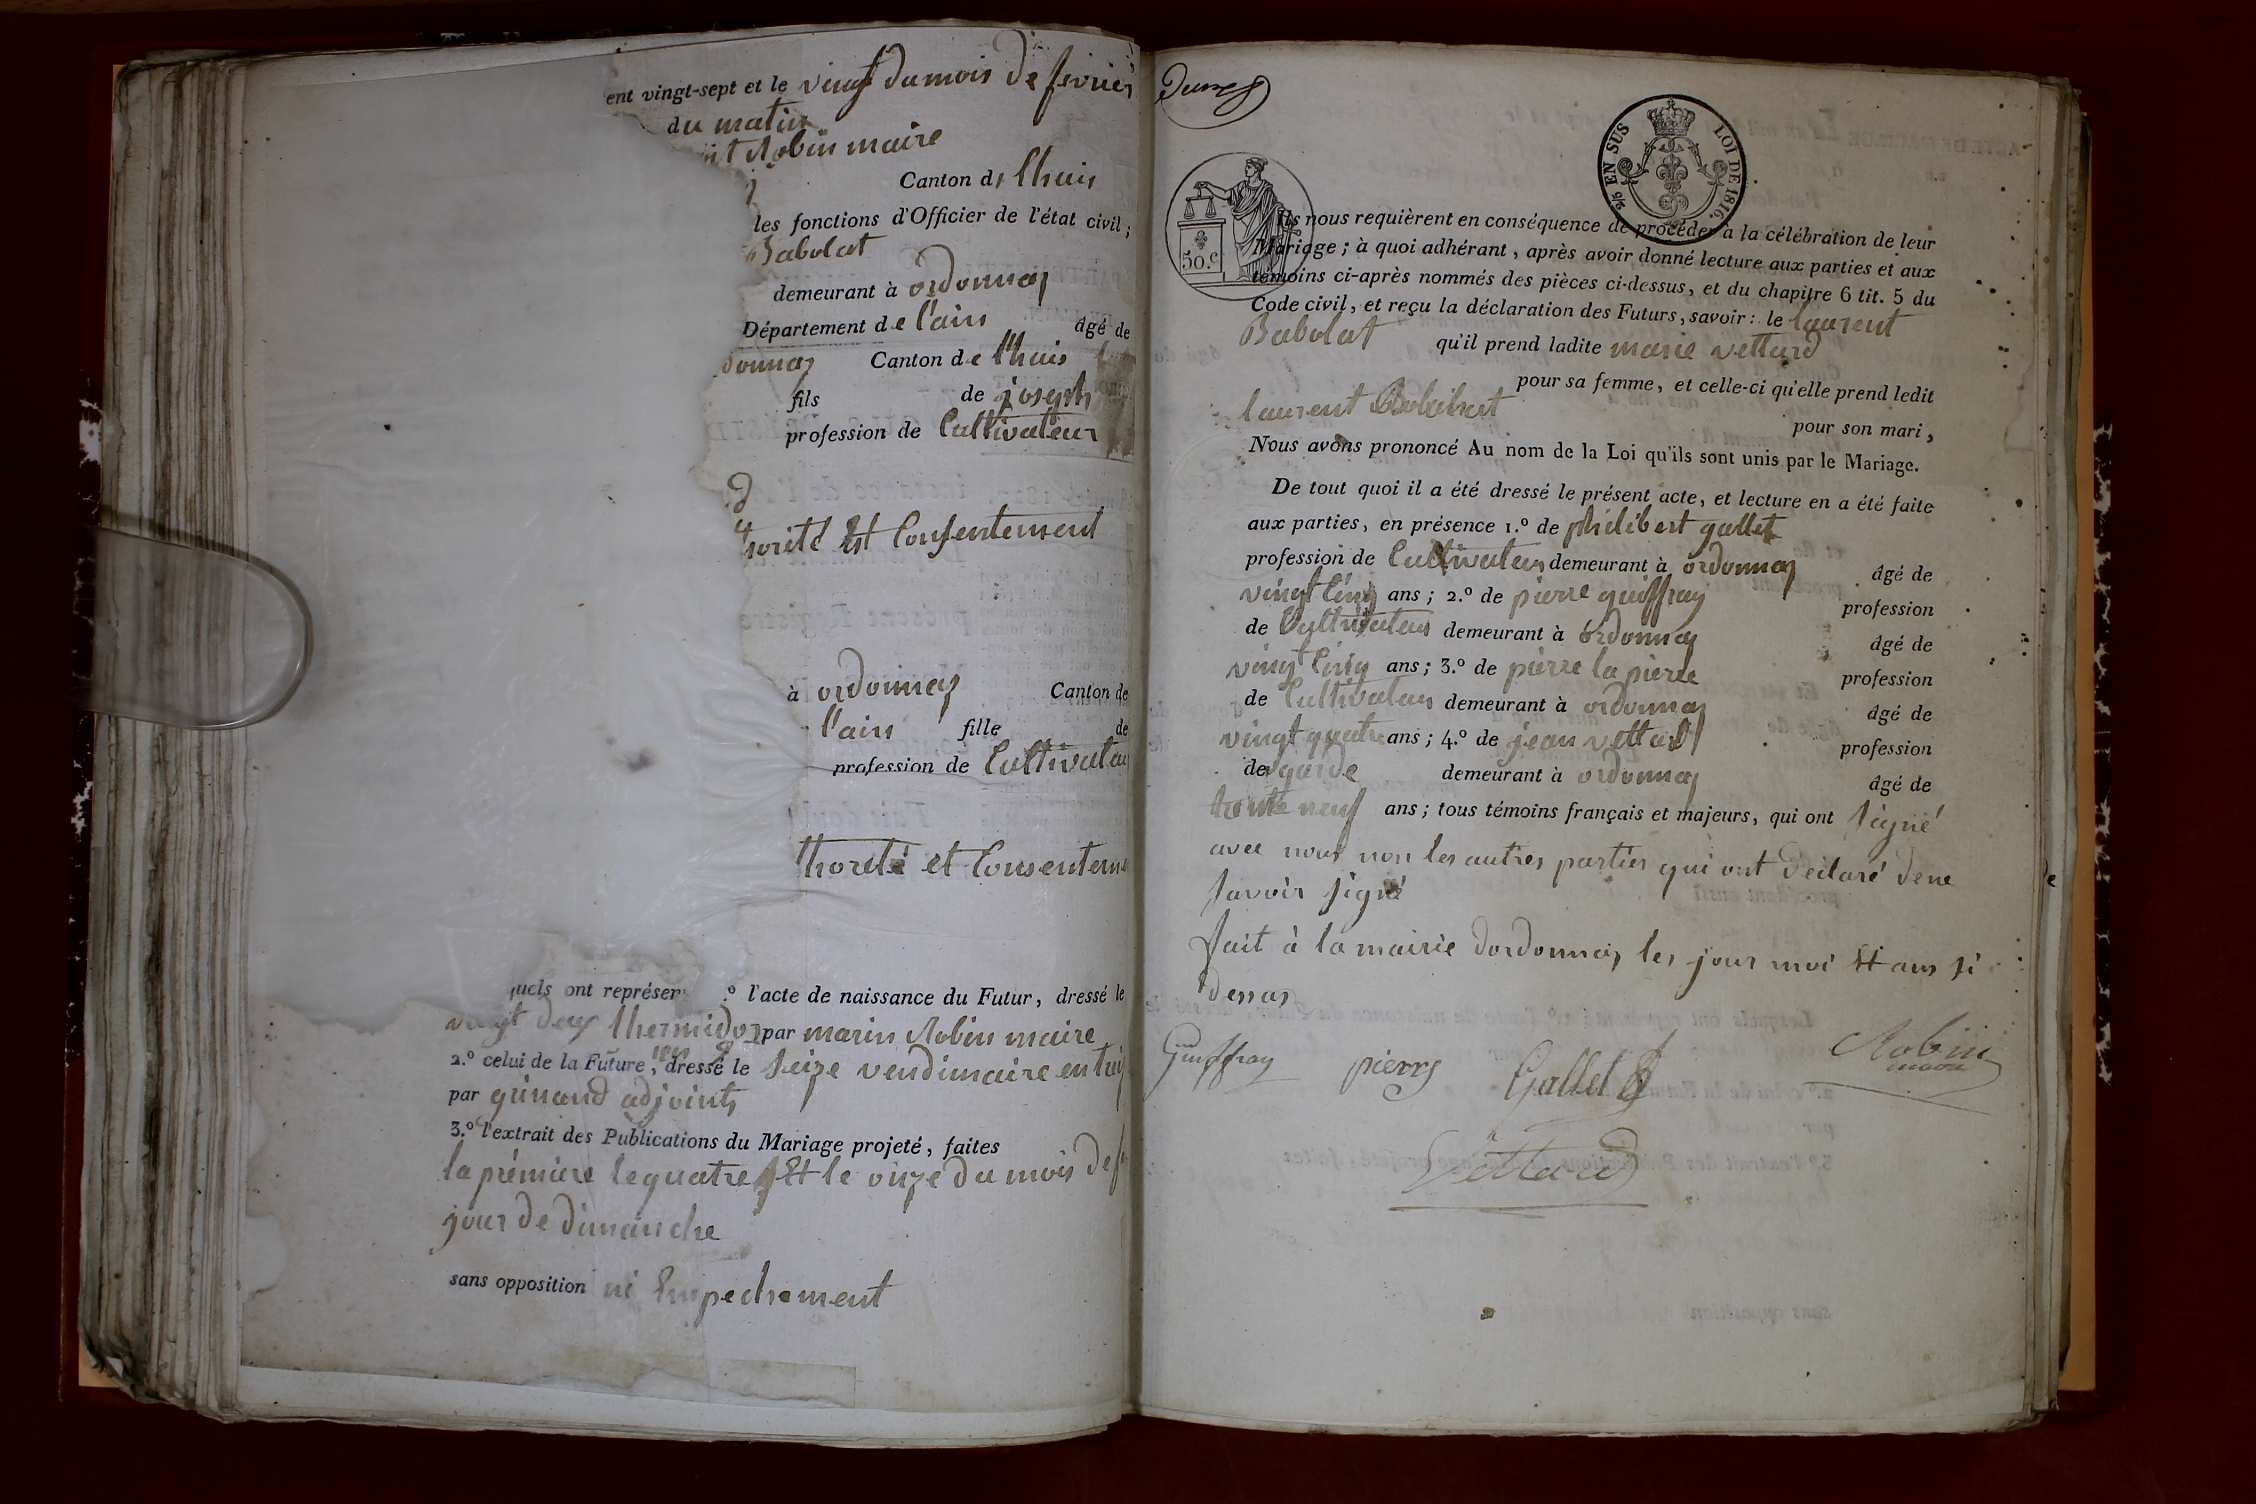 ent vingt-sept et le vingt du mois de fevrier
du matin
Robin maire
Canton de lhuis
les fonctions d'Officier de l'état civil ;
Babolat
demeurant à ordonnas
Département de l'ain âgé de
donnas Canton de lhuis
fils de joseph
profession de Cultivateur
d
thorité Et Consentement
à ordonnas Canton de
l'ain fille de
profession de Cultivateu
thorité et Consenteme
quels ont représen .º l'acte de naissance du Futur, dressé le
vingt deux thermidor par marin Robin maire
2.º celui de la Future, dressé le seize vendimaire
par guinand adjoint
3.º l'extrait des Publications du Mariage projeté, faites
la prémiere le quatre Et le onze du mois de f
jour de dimanche
sans opposition ni Empechement
2/6 EN SUS LOI DE 1816.
50.c
Ils nous requièrent en conséquence de procéder à la célébration de leur
Mariage ; à quoi adhérant, après avoir donné lecture aux parties et aux
témoins ci-après nommés des pièces ci-dessus, et du chapitre 6 tit. 5 du
Code civil, et reçu la déclaration des Futurs, savoir : le laurent
Babolat qu'il prend ladite marie vettard
pour sa femme, et celle-ci qu'elle prend ledit
laurent
pour son mari,
Nous avons prononcé Au nom de la Loi qu'ils sont unis par le Mariage.
De tout quoi il a été dressé le présent acte, et lecture en a été faite
aux parties, en présence 1.º de philibert gallet
profession de Cultivateur demeurant à ordonnas âgé de
vingt Cinq ans ; 2.º de pierre guiffray profession
de Cultivateur demeurant à ordonnas âgé de
vingt Cinq ans ; 3.º de pierre la pierre profession
de Cultivateur demeurant à ordonnas âgé de
vingt quatre ans ; 4.º de jean vettard profession
de garde demeurant à ordonnas âgé de
trente neuf ans ; tous témoins français et majeurs, qui ont signé
avec nous non les autres parties qui ont declaré dene
savoir signé
fait à la mairie dordonnas les jour moi Et ans si
dessas
Guiffray pierre Gallet Robin
maire
Vettard